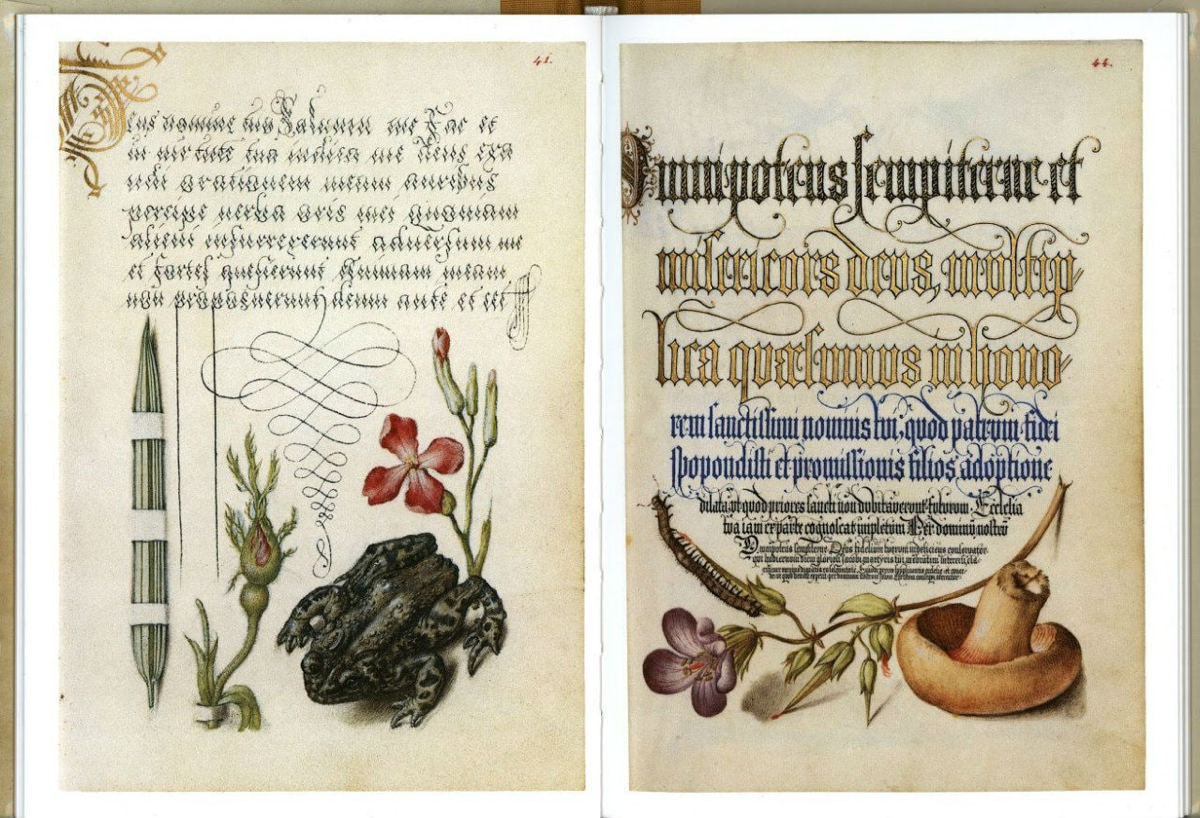 41.
Deus nomine tuo Saluum me Fac et
in uirtute tua iudica me Deus exa
udi orationem meam auribus
percipe uerba oris mei Quoniam
alieni insurrexerunt aduersum me
et fortes quesierunt Animam meam
non proposuerunt deum ante et in
44.
Omnipotens sempiterne et
misericors deus, multip-
lica quæsumus in hono-
rem sanctissimi nominis tui, quod patrum fidei
spopondisti et promissionis filios adoptione
dilata, vt quod priores sancti non dubitaverunt futurum. Ecclesia
tua iam ex parte cognoscat impletum. Per dominum nostru
Omnipotens sempiterne Deus fidelium tuorum indeficiens conservator